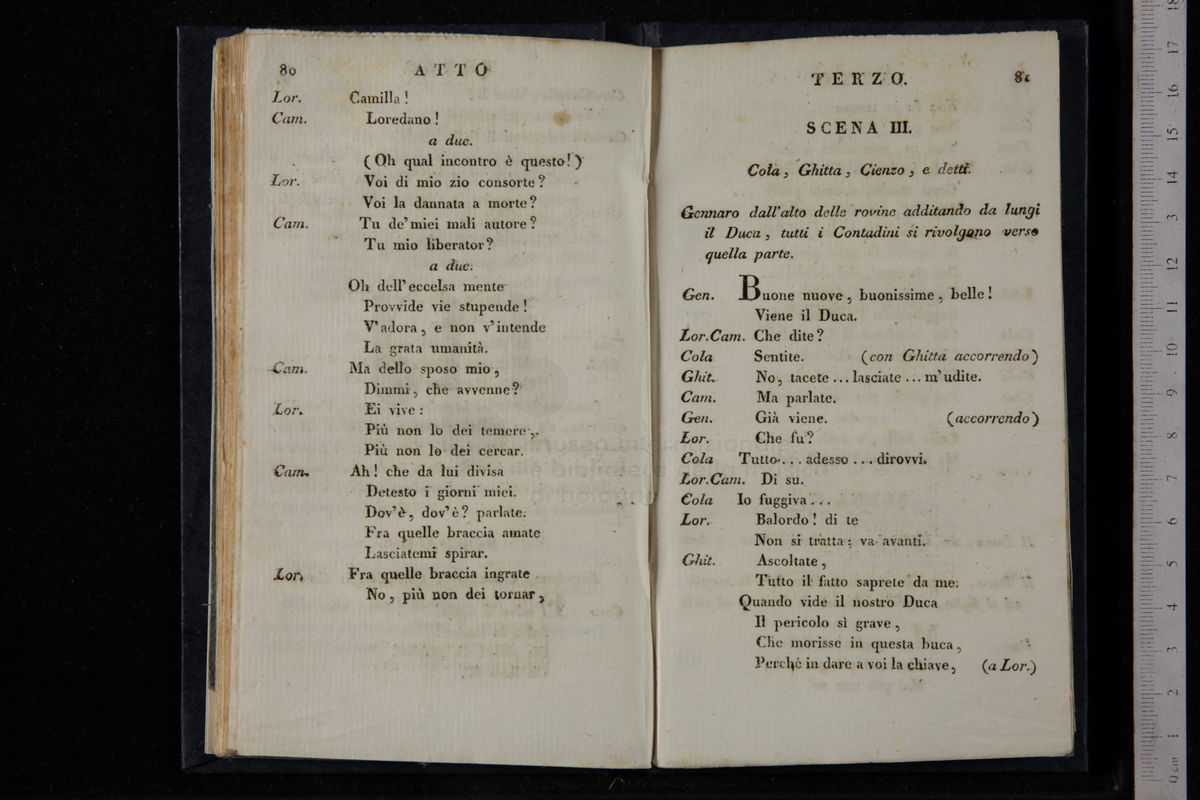 80 ATTO
Lor. Camilla !
Cam. Loredano !
a due.
( Oh qual incontro è questo! )
Lor. Voi di mio zio consorte ?
Voi la dannata a morte ?
Cam. Tu de' miei mali autore ?
Tu mio liberator ?
a due.
Oh dell' eccelsa mente
Provvide vie stupende !
V' adora, e non v' intende
La grata umanità.
Cam. Ma dello sposo mio,
Dimmi, che avvenne ?
Lor. Ei vive :
Più non lo dei temere,
Più non lo dei cercar.
Cam. Ah ! che da lui divisa
Detesto i giorni miei.
Dov' è, dov' è ? parlate.
Fra quelle braccia amate
Lasciatemi spirar.
Lor. Fra quelle braccia ingrate
No, più non dei tornar,
TERZO. 81
SCENA III.
Cola, Ghitta, Cienzo, e detti.
Gennaro dall' alto delle rovine additando da lungi
il Duca, tutti i Contadini si rivolgono verso
quella parte.
Gen. Buone nuove, buonissime, belle !
Viene il Duca.
Lor. Cam. Che dite ?
Cola Sentite. (con Ghitta accorrendo)
Ghit. No, tacete ... lasciate ... m' udite.
Cam. Ma parlate.
Gen. Già viene. (accorrendo)
Lor. Che fu ?
Cola Tutto ... adesso ... dirovvi.
Lor. Cam. Di su.
Cola Io fuggiva ...
Lor. Balordo ! di te
Non si tratta ; va avanti.
Ghit. Ascoltate,
Tutto il fatto saprete da me.
Quando vide il nostro Duca
Il pericolo sì grave,
Che morisse in questa buca,
Perchè in dare a voi la chiave, (a Lor.)
museo internazionale
e biblioteca della musica
di bologna
0 cm 1 2 3 4 5 6 7 8 9 10 11 12 13 14 15 16 17 18